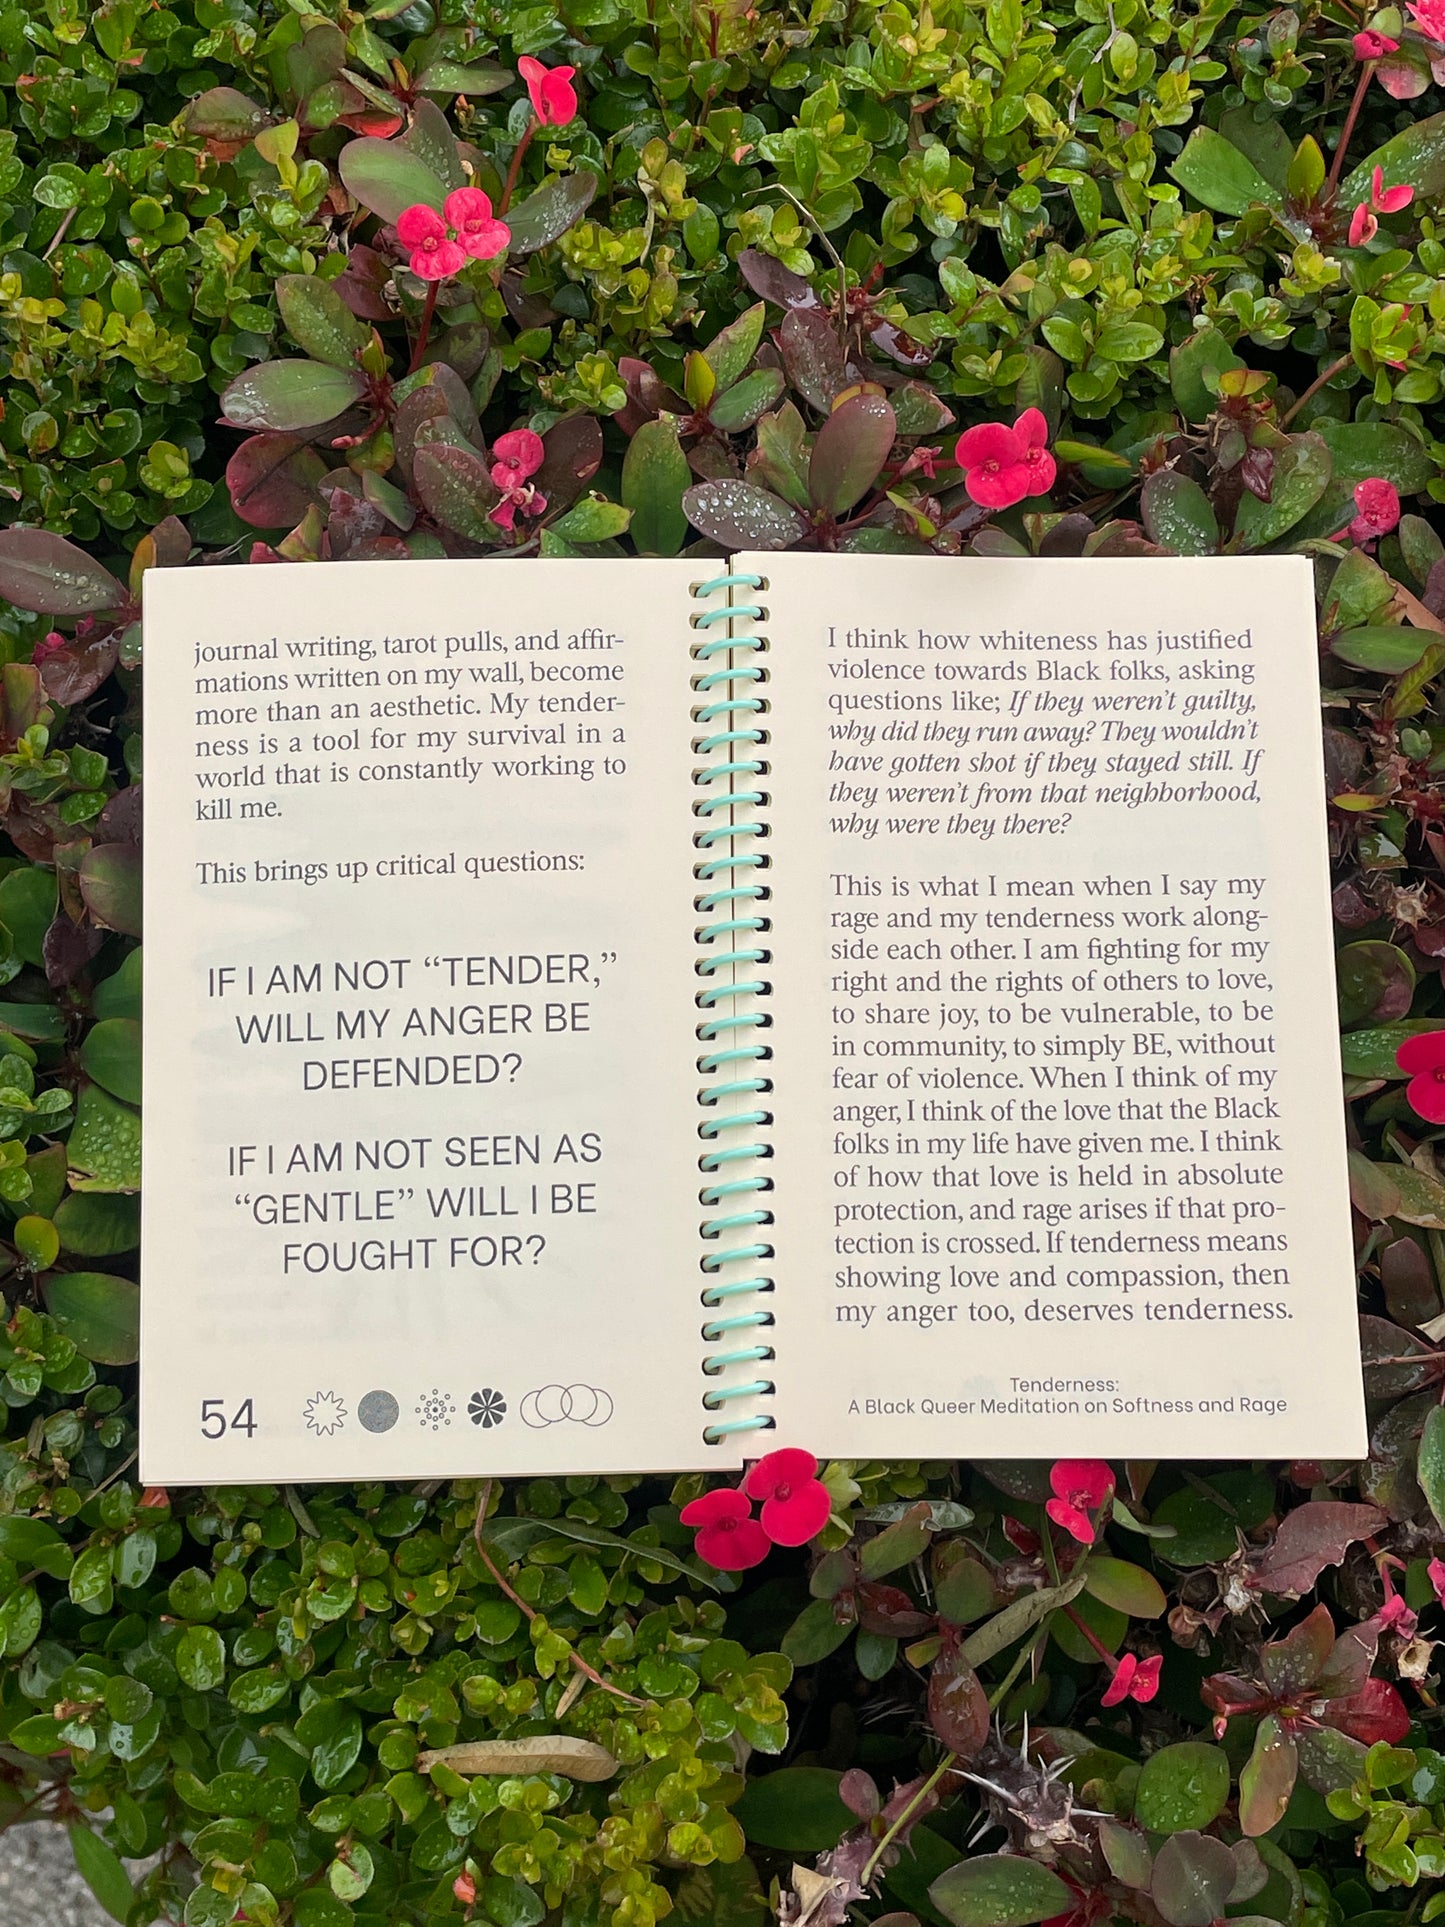 journal writing, tarot pulls, and affir-
mations written on my wall, become
more than an aesthetic. My tender-
ness is a tool for my survival in a
world that is constantly working to
kill me.
This brings up critical questions:
IF I AM NOT “TENDER,”
WILL MY ANGER BE
DEFENDED?
IF I AM NOT SEEN AS
“GENTLE” WILL I BE
FOUGHT FOR?
54
I think how whiteness has justified
violence towards Black folks, asking
questions like; If they weren’t guilty,
why did they run away? They wouldn’t
have gotten shot if they stayed still. If
they weren’t from that neighborhood,
why were they there?
This is what I mean when I say my
rage and my tenderness work along-
side each other. I am fighting for my
right and the rights of others to love,
to share joy, to be vulnerable, to be
in community, to simply BE, without
fear of violence. When I think of my
anger, I think of the love that the Black
folks in my life have given me. I think
of how that love is held in absolute
protection, and rage arises if that pro-
tection is crossed. If tenderness means
showing love and compassion, then
my anger too, deserves tenderness.
Tenderness:
A Black Queer Meditation on Softness and Rage